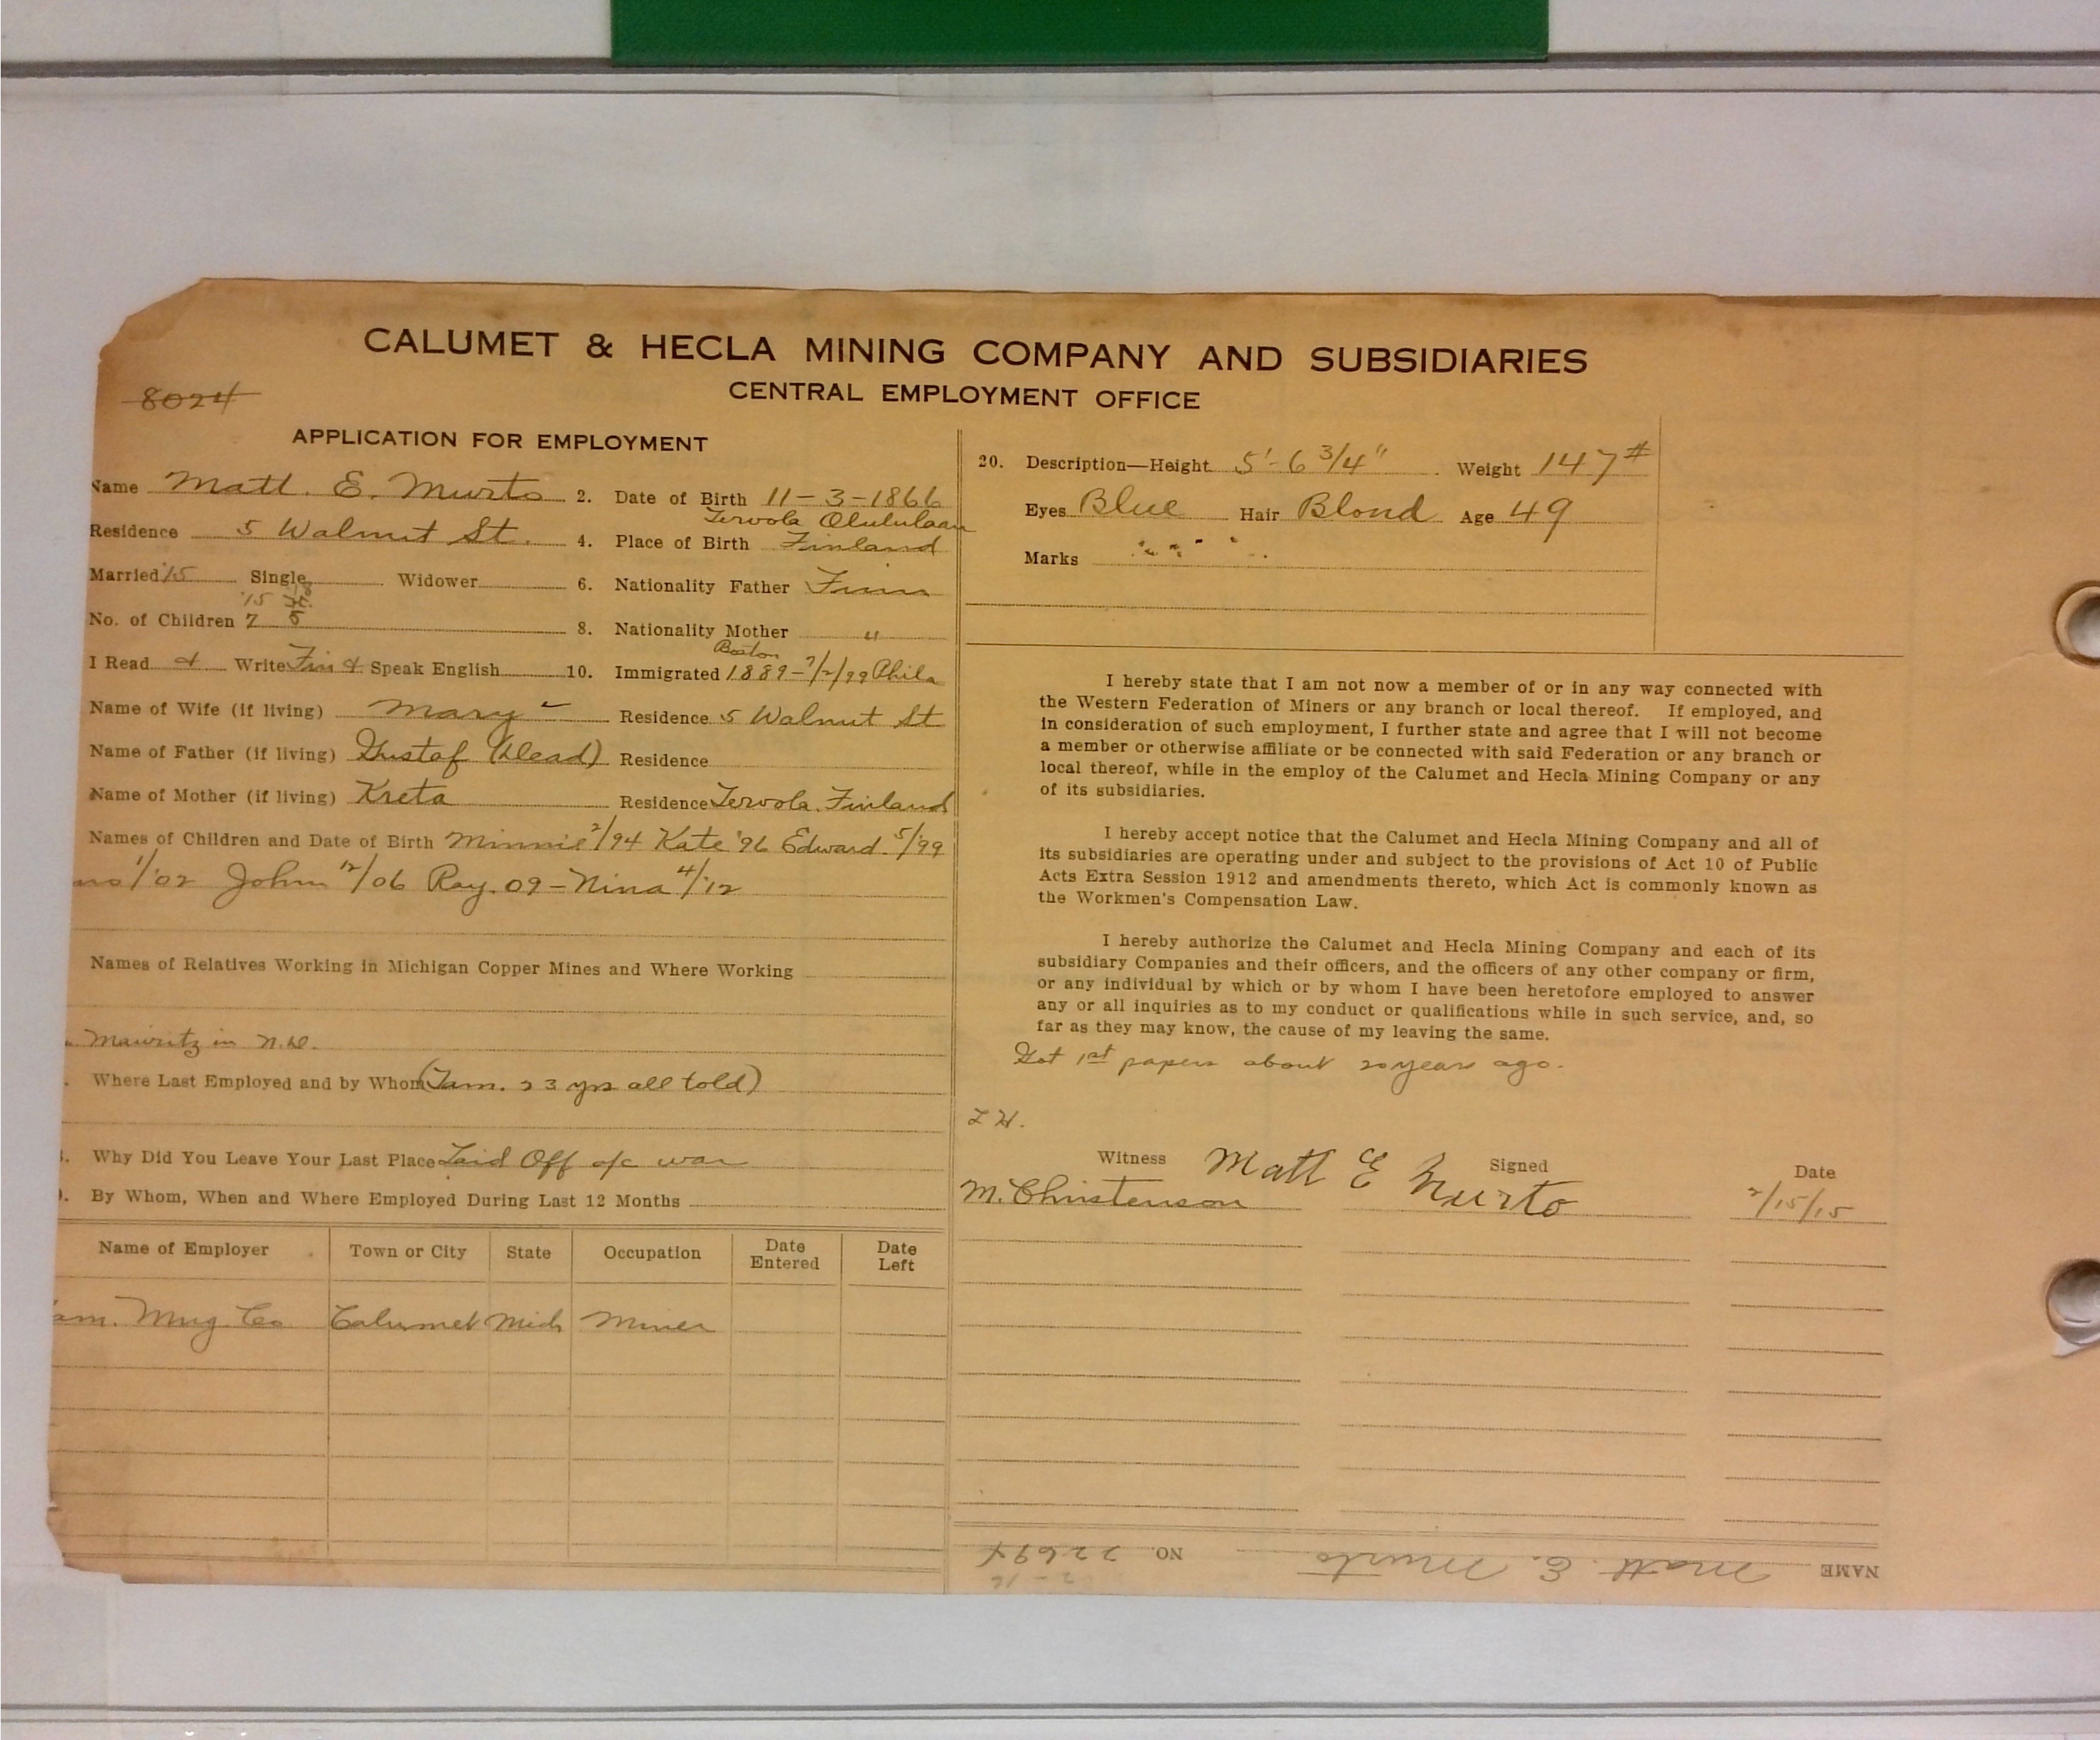 CALUMET & HECLA MINING COMPANY AND SUBSIDIARIES
CENTRAL EMPLOYMENT OFFICE
8024
APPLICATION FOR EMPLOYMENT
Name Matt. E. Murto 2. Date of Birth 11-3-1866
Residence 5 Walnut St. 4. Place of Birth Tervola Finland
Married '15 Single Widower 6. Nationality Father Finn
'15
No. of Children 7 8. Nationality Mother "
I Read & Write Fin & Speak English 10. Immigrated Boston 1889-7/2/99 Phila
Name of Wife (if living) Mary Residence 5 Walnut St
Name of Father (if living) Gustaf (Dead) Residence
Name of Mother (if living) Kreta Residence Tervola. Finland
Names of Children and Date of Birth Minnie 2/94 Kate '96 Edward 5/99
1/'02 John 12/06 Ray. 09-Nina 4/'12
Names of Relatives Working in Michigan Copper Mines and Where Working
Mauritz in
Where Last Employed and by Whom (Tam. 23 yrs all told)
Why Did You Leave Your Last Place Laid Off a/c war
By Whom, When and Where Employed During Last 12 Months
Name of Employer Town or City State Occupation Date Entered Date Left
am. Mng Co Calumet Mich Miner
20. Description—Height 5'-6 3/4" Weight 147#
Eyes Blue Hair Blond Age 49
Marks
I hereby state that I am not now a member of or in any way connected with
the Western Federation of Miners or any branch or local thereof. If employed, and
in consideration of such employment, I further state and agree that I will not become
a member or otherwise affiliate or be connected with said Federation or any branch or
local thereof, while in the employ of the Calumet and Hecla Mining Company or any
of its subsidiaries.
I hereby accept notice that the Calumet and Hecla Mining Company and all of
its subsidiaries are operating under and subject to the provisions of Act 10 of Public
Acts Extra Session 1912 and amendments thereto, which Act is commonly known as
the Workmen's Compensation Law.
I hereby authorize the Calumet and Hecla Mining Company and each of its
subsidiary Companies and their officers, and the officers of any other company or firm,
or any individual by which or by whom I have been heretofore employed to answer
any or all inquiries as to my conduct or qualifications while in such service, and, so
far as they may know, the cause of my leaving the same.
Got 1st papers about 20 years ago.
Witness Signed Date
M. Christenson Matt E Murto 2/15/15
NAME Matt. E. Murto NO. 22694